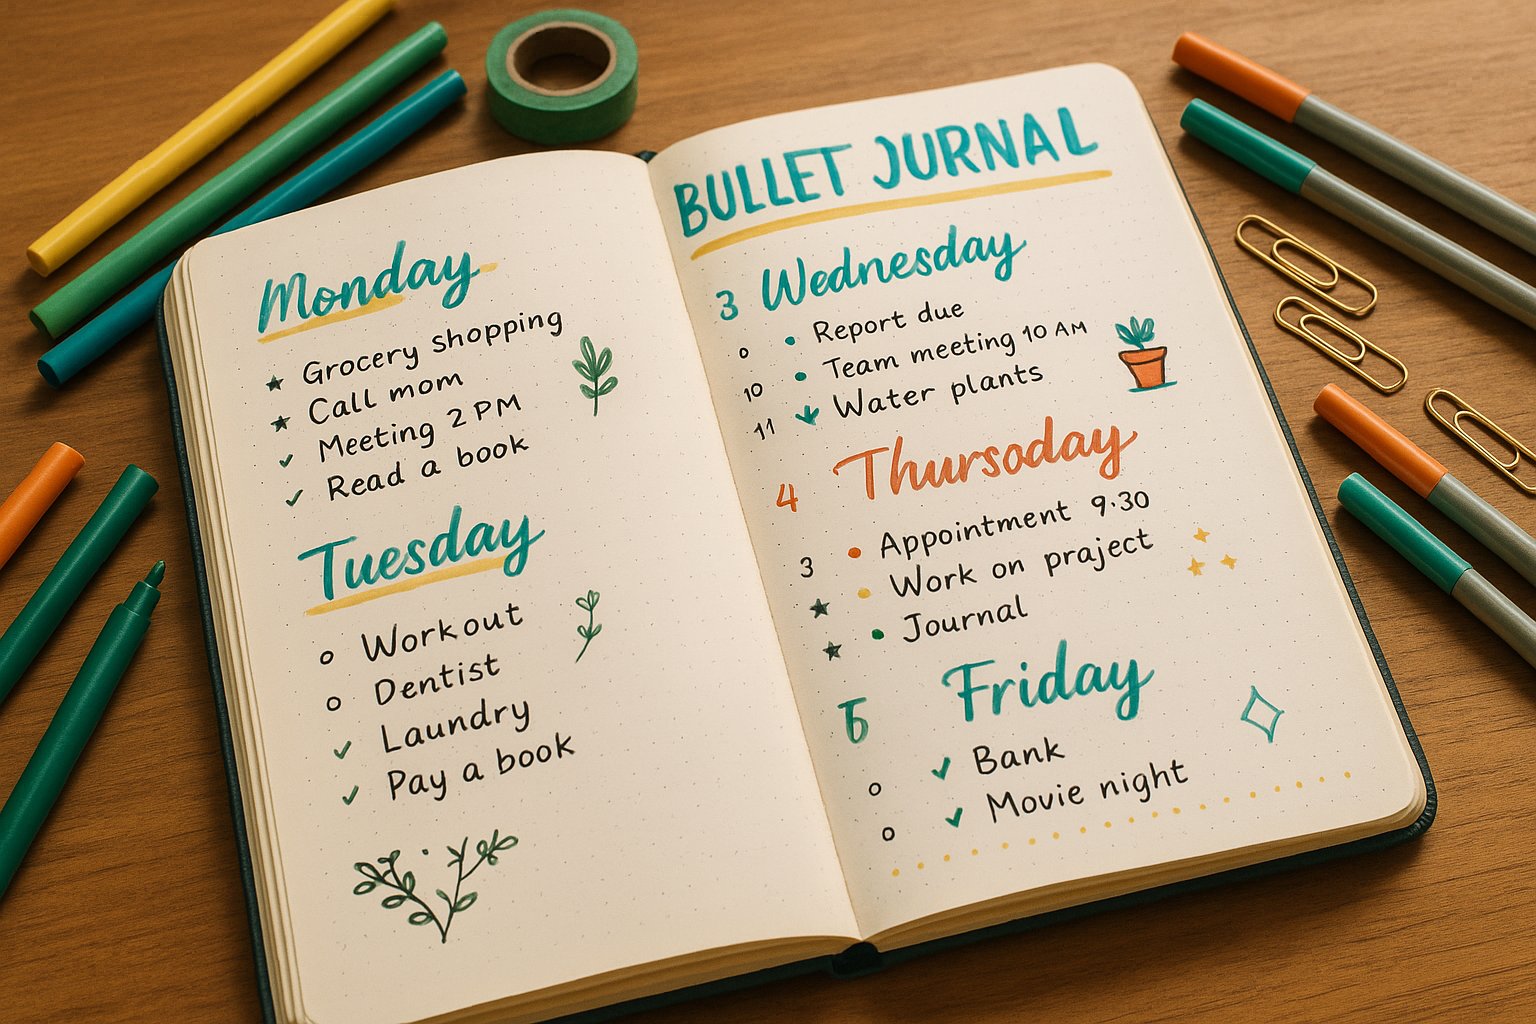 Monday
Grocery shopping
Call mom
Meeting 2 PM
Read a book
Tuesday
Workout
Dentist
Laundry
Pay a book
BULLET JURNAL
3 Wednesday
Report due
Team meeting 10 AM
10
Water plants
11
4 Thursoday
Appointment 9.30
3
Work on praject
Journal
Friday
Bank
Movie night